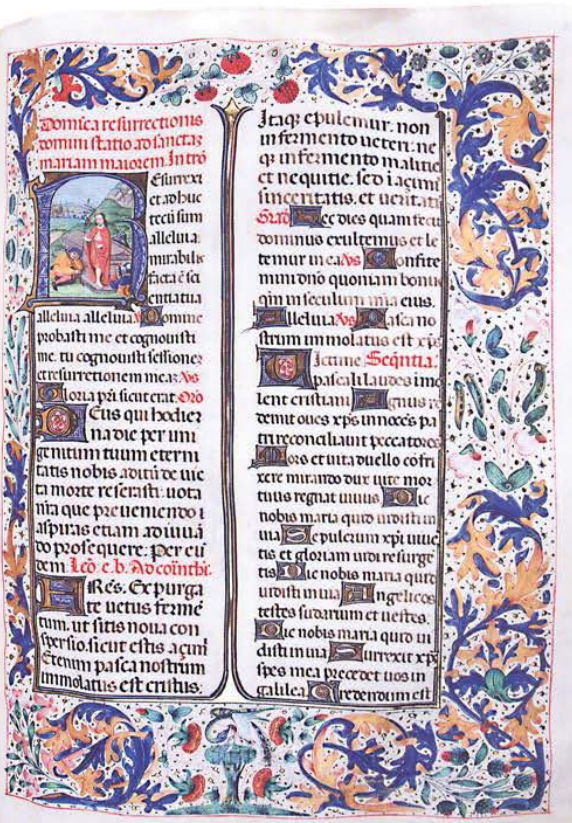 Domica resurrectionis
domini statio ad sanctaz
mariam maiorem Intro
Resurrexi
et adhuc
tecū sum
alleluia:
mirabilis
facta ē sci
entia tua
alleluia alleluia. Domine
probasti me et cognovisti
me. tu cognovisti sessionez
et resurrectionem meaz Vs
Gloria pri sicut erat. Orō
Deus qui hodier
na die per uni
genitum tuum eterni
tatis nobis aditū de vic
ta morte reserasti: vota
nrā que preveniendo i
aspiras etiam adiuuā
do prosequere. Per eū
dem Leō. e. b. Ad corinthi.
FRēs. Expurga
te vetus fermē
tum. ut sitis nova con
spersio. sicut estis açimi
Etenim pasca nostrum
immolatus est cristus:
Itaqz epulemur. non
in fermento veteri: ne
qz in fermento malitie
et nequitie. sed i açimis
sinceritatis. et veritatis
Grad Hec dies quam fecit
dominus exultemus et le
temur in ea Vs Confite
mini dnō quoniam bonus
qm in seculum mīa eius.
Alleluia Vs Pasca no
strum immolatus est xps
Victime Seqntia.
pascali laudes imo
lent cristiani Agnus re
demit oves xps innocēs pa
tri reconciliavit peccatores
Mors et vita duello cōfli
xere mirando dux vite mor
tuus regnat vivus Dic
nobis maria quid vidisti in
via Sepulcrum xpi vive
tis et gloriam vidi resurgē
tis Dic nobis maria quid
vidisti in via Angelicos
testes sudarium et vestes.
Dic nobis maria quid vi
disti in via Surrexit xps
spes mea precedet vos in
galilea Credendum est